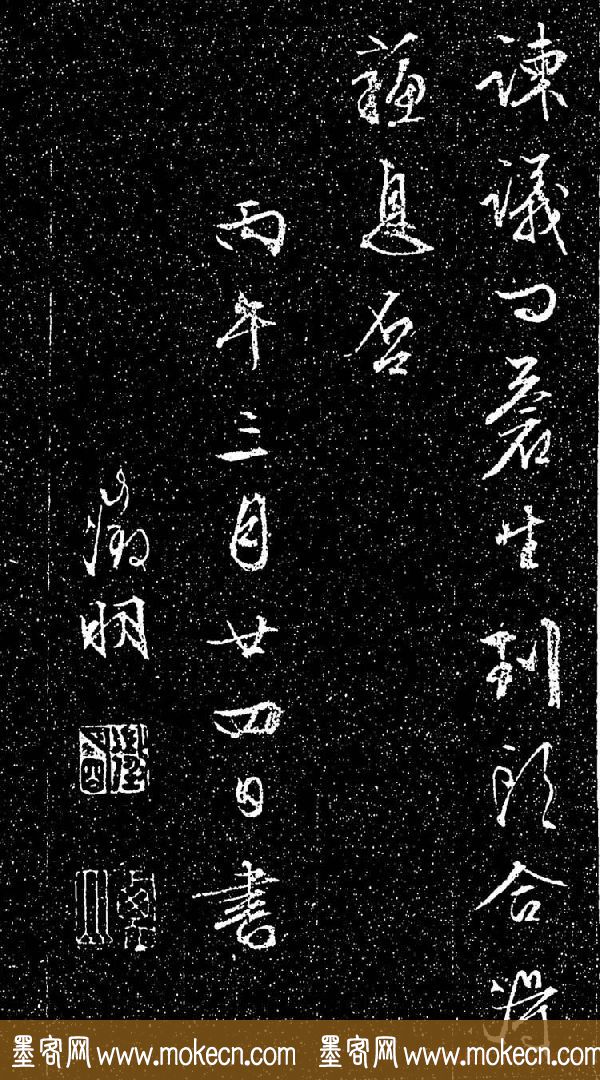 諫議問蒼生到頭合得
蘇息否
丙午三月廿四日書
徵明
墨客网 www.mokecn.com 墨客网 www.mokecn.com